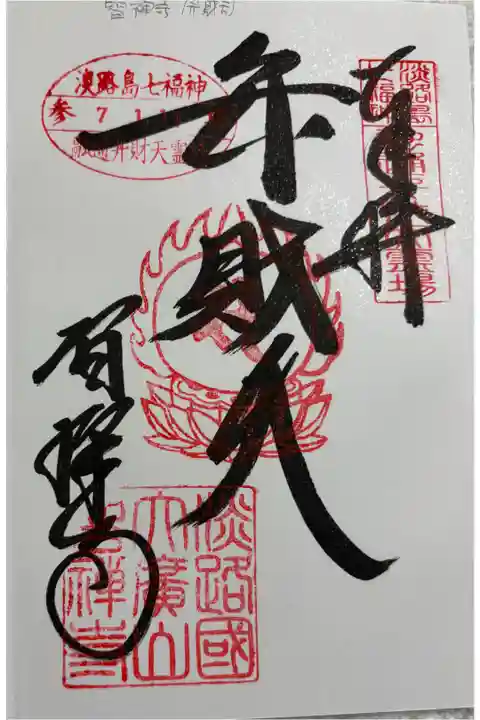 智禅寺 弁財天
淡路島七福神
参 7.1.
弁財天霊
淡路島
七福神
霊場
奉拝
弁財天
智禅寺
淡路國
大廣山
智禅寺